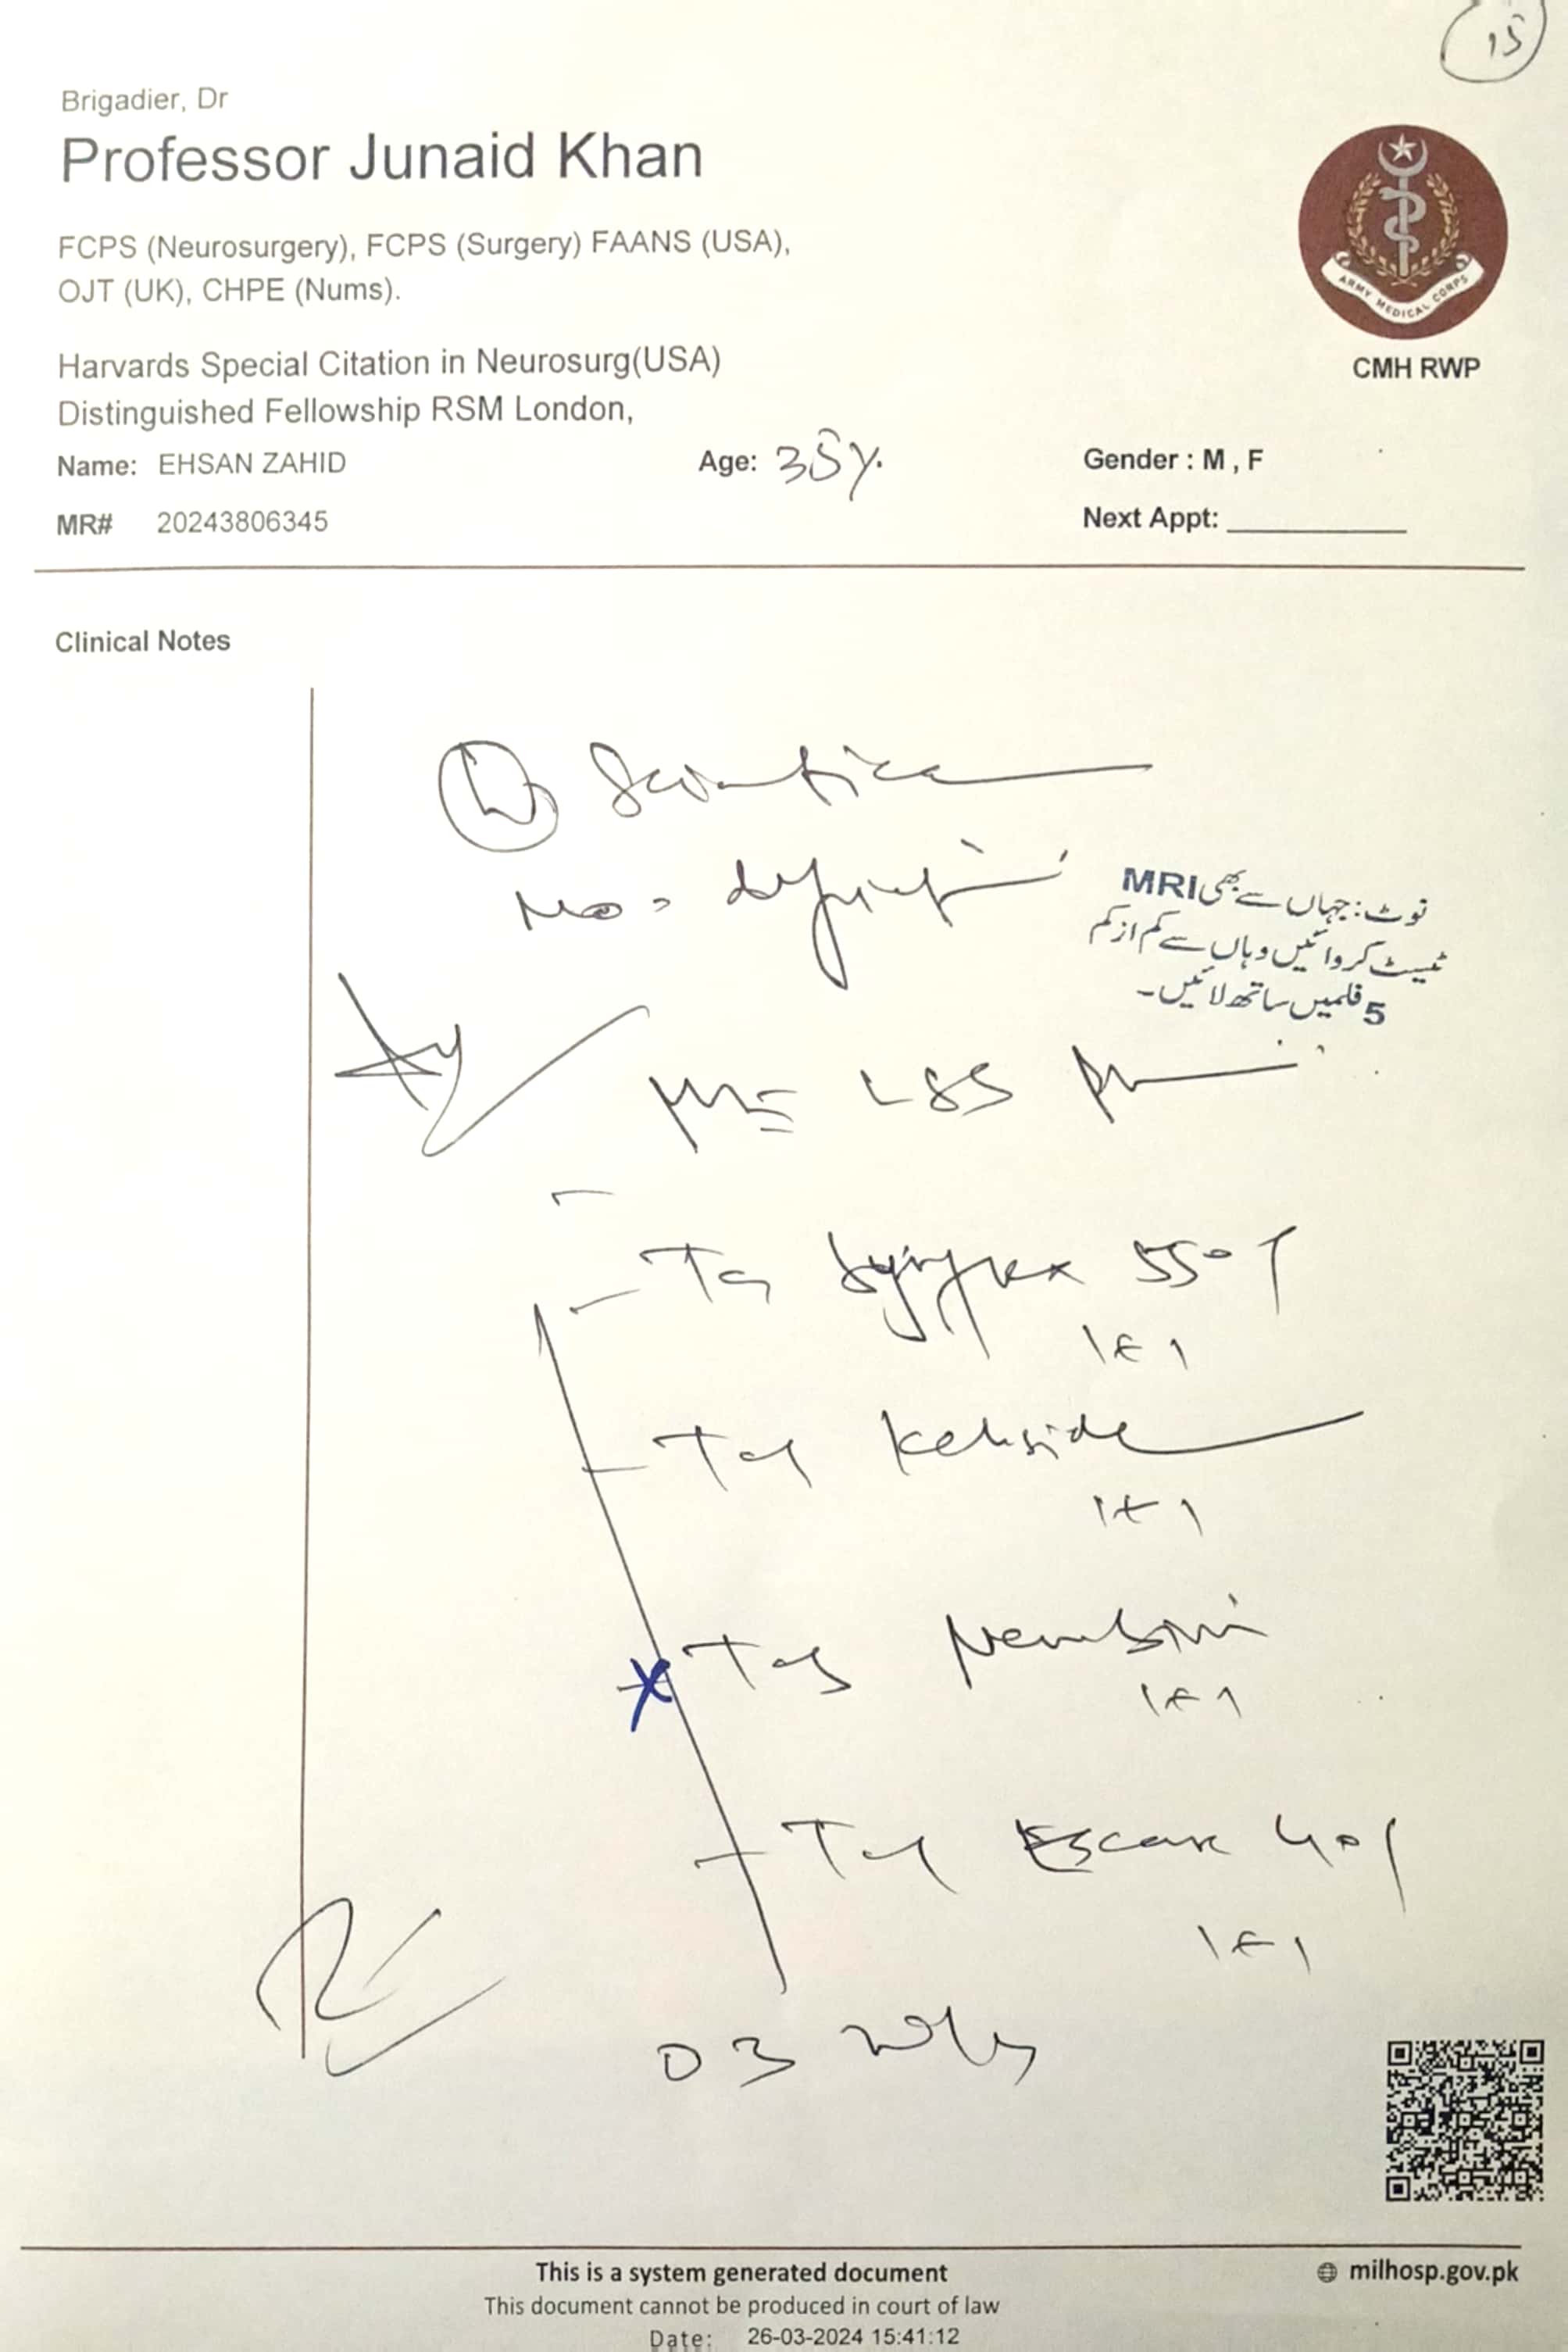 15
Brigadier, Dr
Professor Junaid Khan
FCPS (Neurosurgery), FCPS (Surgery) FAANS (USA),
OJT (UK), CHPE (Nums).
Harvards Special Citation in Neurosurg(USA)
Distinguished Fellowship RSM London,
ARMY MEDICAL CORPS
CMH RWP
Name: EHSAN ZAHID Age: 35y. Gender : M , F
MR# 20243806345 Next Appt:
Clinical Notes
Sciatica
No
نوٹ: جہاں سے بھی MRI
ٹیسٹ کروائیں وہاں سے کم از کم
5 فلمیں ساتھ لائیں۔
LSS
550
1+1
1+1
1+1
40
1+1
03
This is a system generated document
milhosp.gov.pk
This document cannot be produced in court of law
Date: 26-03-2024 15:41:12